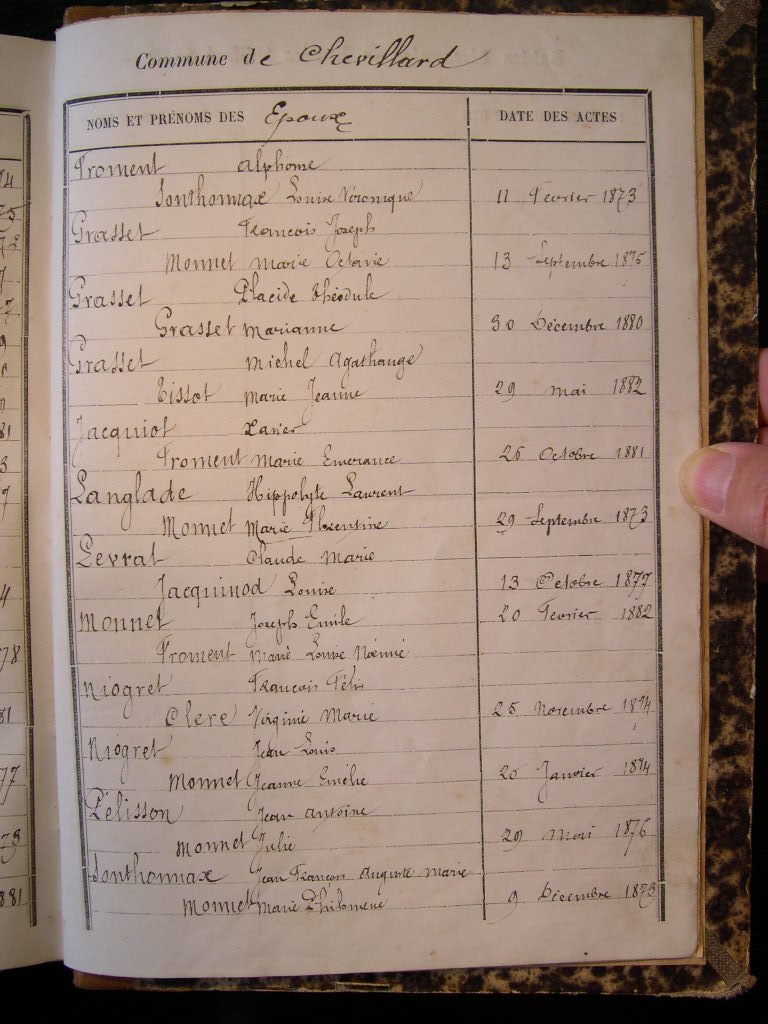 Commune de Chevillard
NOMS ET PRÉNOMS DES Epoux DATE DES ACTES
Froment Alphonse
Sonthonnax Louise Véronique 11 Fevrier 1873
Grasset Francois Joseph
Monnet Marie Octavie 13 Septembre 1875
Grasset Placide Théodule
Grasset Marianne 30 Décembre 1880
Grasset Michel Agathange
Tissot Marie Jeanne 29 Mai 1882
Jacquiot Xavier
Froment Marie Emerance 26 Octobre 1881
Langlade Hippolyte Laurent
Monnet Marie Florentine 29 Septembre 1873
Levrat Claude Marie
Jacquinod Louise 13 Octobre 1877
Monnet Joseph Emile 20 Fevrier 1882
Froment Marie Louise Noémie
Niogret Francois Félix
Clere Virginie Marie 25 Novembre 1874
Niogret Jean Louis
Monnet Jeanne Emélie 26 Janvier 1874
Pélisson Jean Antoine
Monnet Julie 29 Mai 1876
Sonthonnax Jean François Auguste Marie
Monnet Marie Philomene 9 Décembre 1873
74
75
81
3
7
4
78
81
77
73
881